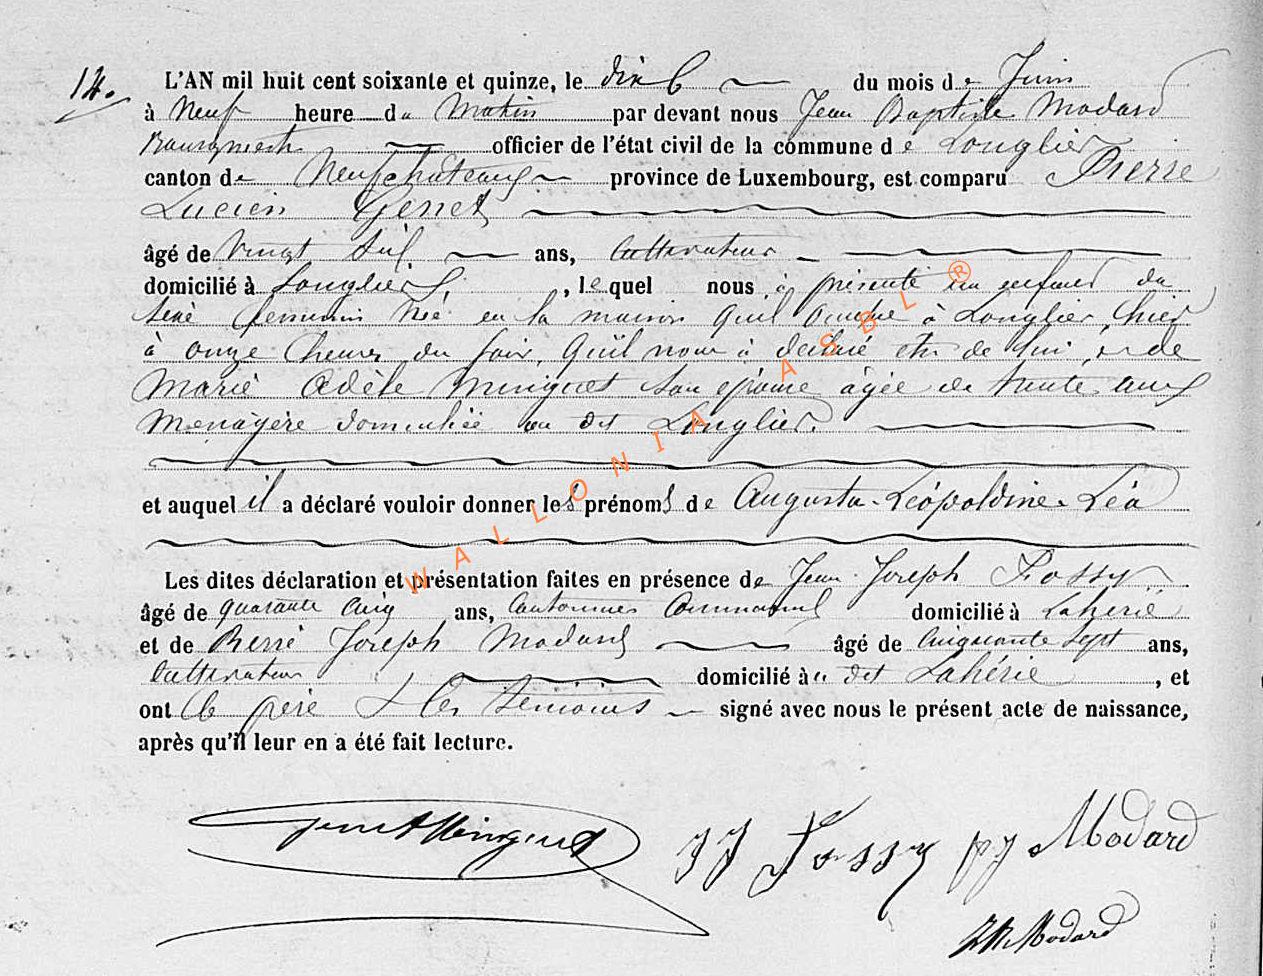 14.
L'AN mil huit cent soixante et quinze, le dix du mois de Juin
à Neuf heure du Matin par devant nous Jean Baptiste Modard
Bourgmestre officier de l'état civil de la commune de Longlier
canton de Neufchâteau province de Luxembourg, est comparu Pierre
Lucien Genet
âgé de Vingt six ans, Cultivateur
domicilié à Longlier, lequel nous a présenté un enfant du
sexe féminin née en la maison qu'il occupe à Longlier, hier
à onze heures du soir, qu'il nous a déclaré être de lui, et de
Marie Adèle Minguet son épouse âgée de trente ans
Ménagère domiciliée au dit Longlier.
et auquel il a déclaré vouloir donner les prénoms de Augusta-Léopoldine-Léa
Les dites déclaration et présentation faites en présence de Jean Joseph Fossy
âgé de quarante cinq ans, Cantonnier Communal domicilié à Lahérie
et de Pierre Joseph Modard âgé de Cinquante Sept ans,
Cultivateur domicilié au dit Lahérie, et
ont le père & les témoins signé avec nous le présent acte de naissance,
après qu'il leur en a été fait lecture.
JJ Fossy pj Modard
Modard
WALLONIA ASBL ®